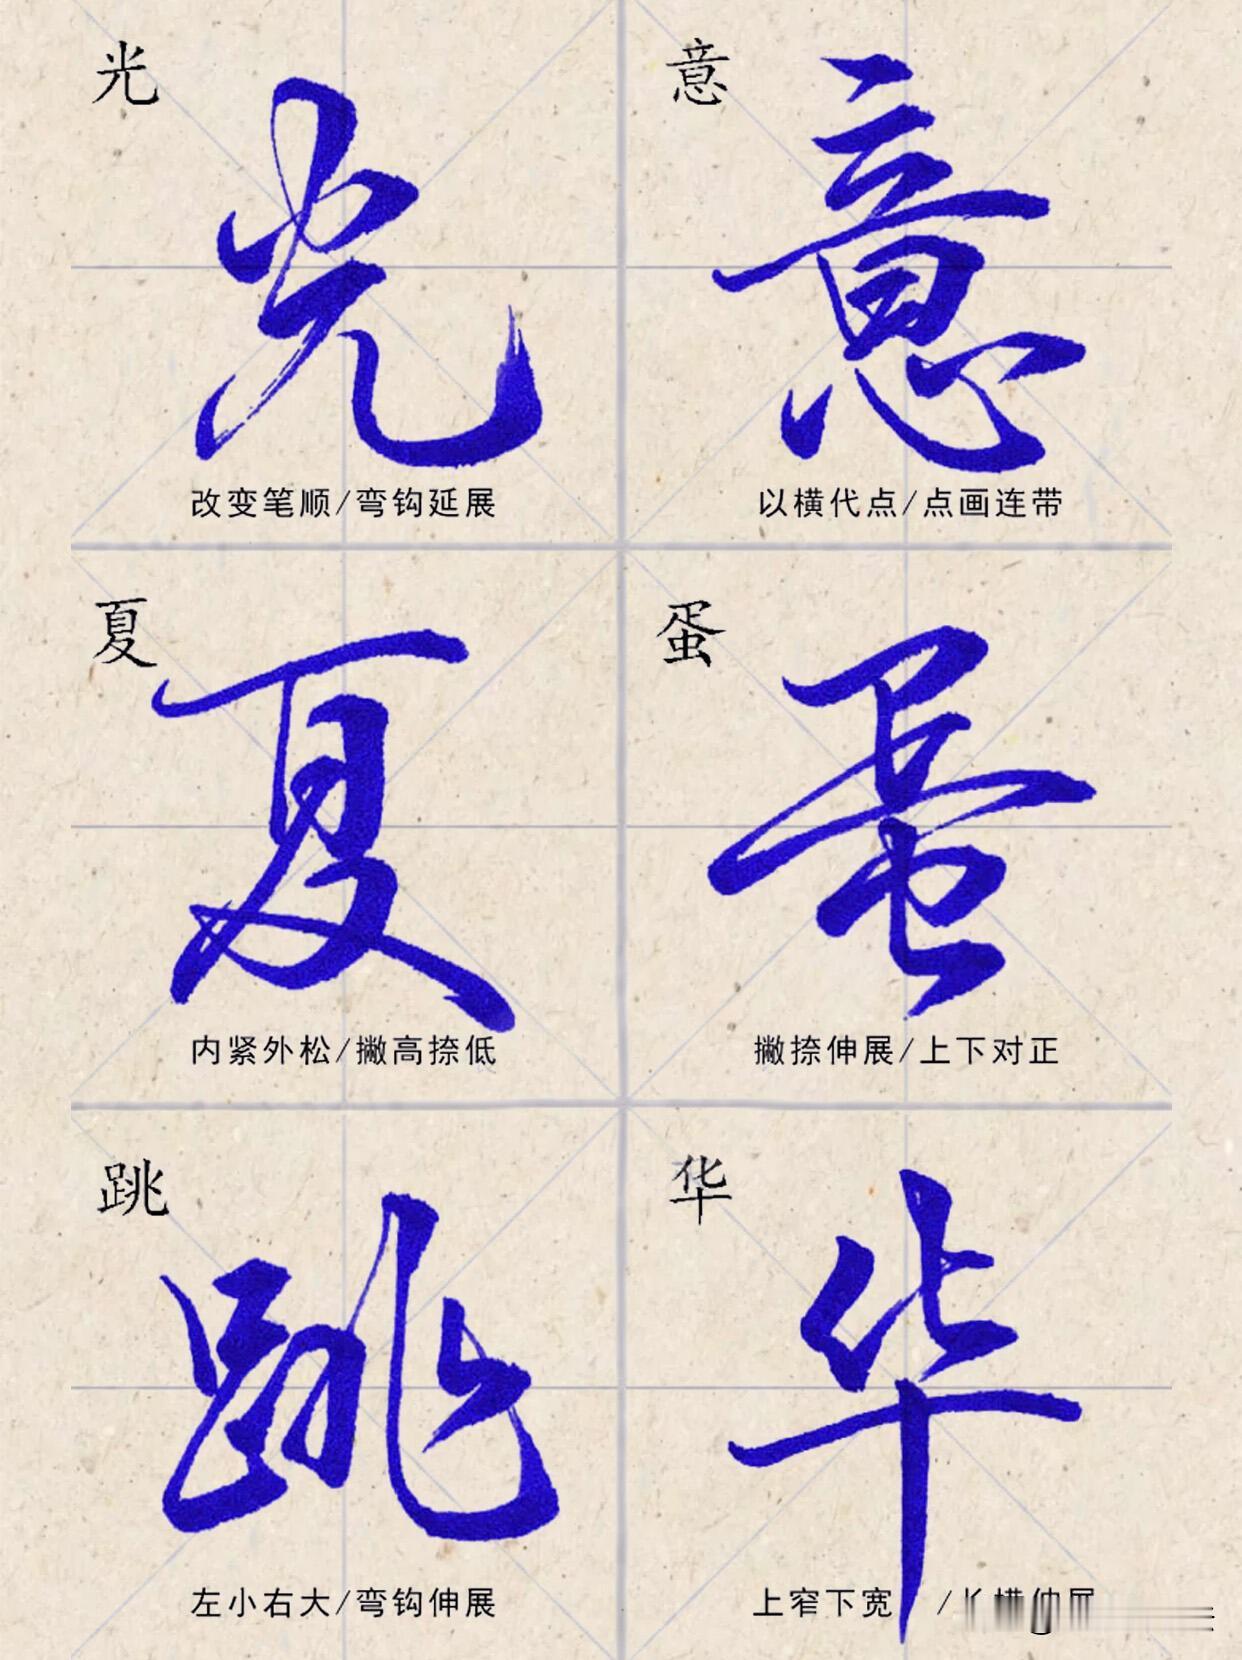 光
光
改变笔顺/弯钩延展
意
意
以横代点/点画连带
夏
夏
内紧外松/撇高捺低
蛋
蛋
撇捺伸展/上下对正
跳
跳
左小右大/弯钩伸展
华
华
上窄下宽/长横伸展